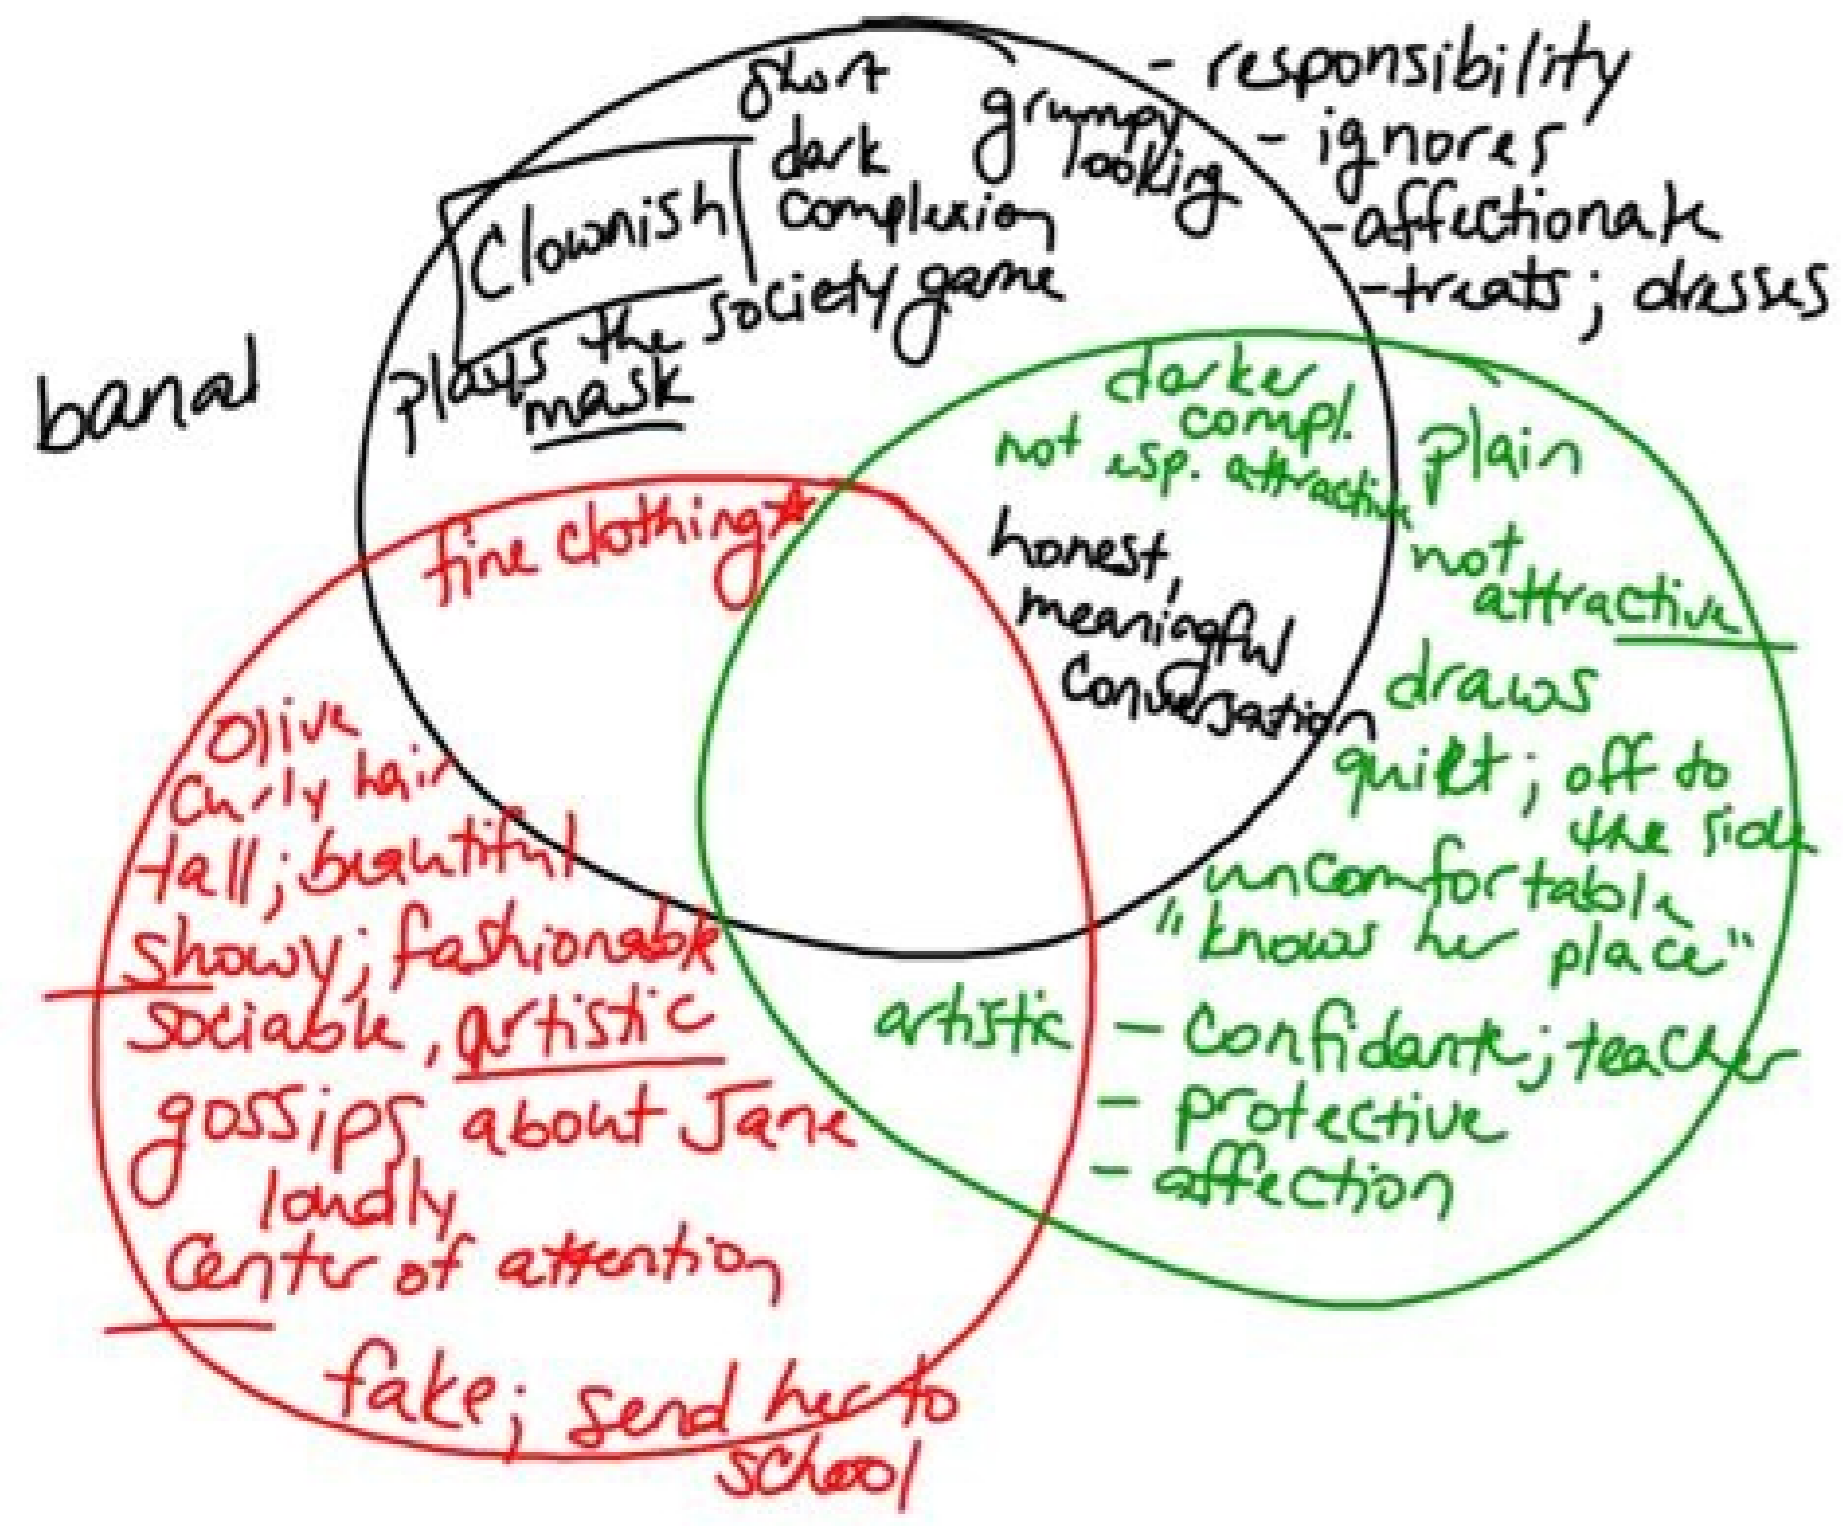 short
grumpy
looking
dark
complexion
Clownish
plays the society game
mask
- responsibility
- ignores
- affectionate
- treats; dresses
banal
fine clothing*
darker
compl.
not esp. attractive
honest,
meaningful
conversation
plain
not
attractive
draws
quiet; off to
the side
uncomfortable
"knows her place"
artistic
- confidante; teacher
- protective
- affection
olive
curly hair
tall; beautiful
showy; fashionable
sociable, artistic
gossips about Jane
loudly
center of attention
fake; send her to
school